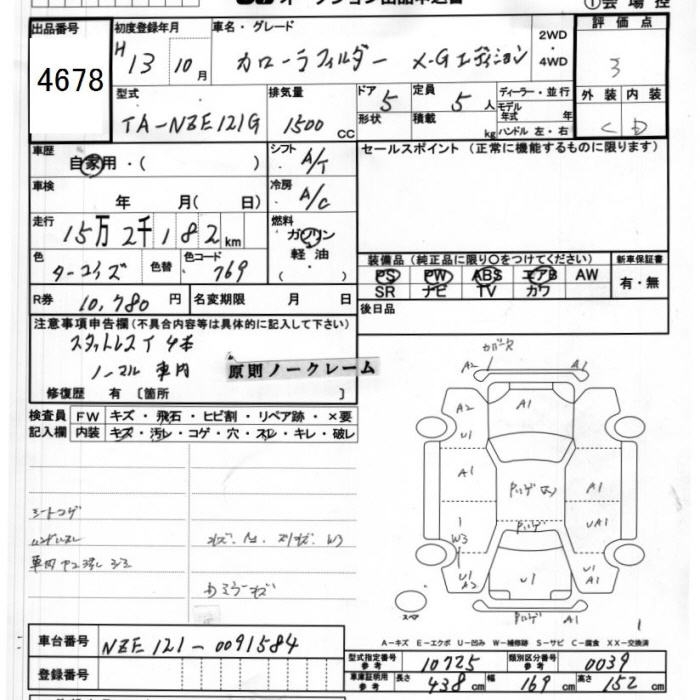 出品番号 初度登録年月 車名・グレード 2WD・4WD 評価点
4678 H13 10月 カローラフィルダー X-Gエディション 3
型式 排気量 ドア 定員 ディーラー・並行 外装 内装
TA-NZE121G 1500cc 5 5人 モデル年式 年 C D
形状 積載 kg ハンドル 左・右
車歴 自家用・( ) シフト A/T セールスポイント(正常に機能するものに限ります)
車検 年 月( 日) 冷房 A/C
走行 15万2千182km 燃料 ガソリン 軽油
色 ターコイズ 色替 色コード 769
装備品(純正品に限り○をつけてください) 新車保証書
PS PW ABS エアB AW 有・無
SR ナビ TV カワ
R券 10,780円 名変期限 月 日 後日品
注意事項申告欄(不具合内容等は具体的に記入して下さい)
スタットレスイ 4本
ノーマル 車内
原則ノークレーム
修復歴 有 [箇所 ]
検査員 FW キズ・飛石・ヒビ割・リペア跡・×要
記入欄 内装 キズ・汚レ・コゲ・穴・スレ・キレ・破レ
シートコゲ
A2 A1
A2 A1
U1
A1 A1
W3 UA1
U1 A2 U1 U1 A2
A1
スペア
A-キズ E-エクボ U-凹み W-補修跡 S-サビ C-腐食 XX-交換済
車台番号 NZE121-0091584
登録番号
型式指定番号 10725 類別区分番号 0039
車庫証明用 長さ 438cm 幅 169cm 高さ 152cm